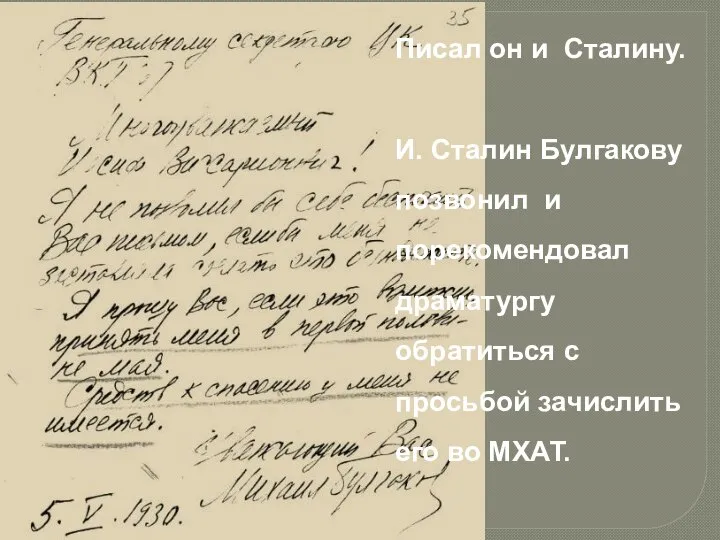 35
Генеральному секретарю ЦК
ВКП
Многоуважаемый
Иосиф Виссарионович!
Я не позволил бы себе беспокоить
Вас письмом, если бы меня не
заставляла сделать это
Я прошу Вас, если это возможно
принять меня в первой полови-
не мая.
Средств к спасению у меня не
имеется.
Уважающий Вас
Михаил Булгаков
5.V.1930.
Писал он и Сталину.
И. Сталин Булгакову
позвонил и
порекомендовал
драматургу
обратиться с
просьбой зачислить
его во МХАТ.